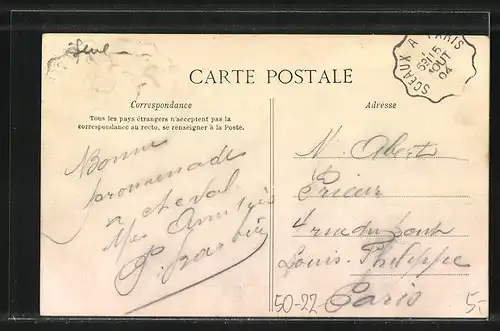 Seine
SCEAUX A PARIS
15
AOUT
04
CARTE POSTALE
Correspondance
Adresse
Tous les pays étrangers n'acceptent pas la
correspondance au recto, se renseigner à la Poste.
Bonne
promenade
a cheval.
Mes Amitiés
M. Albert
Prieur
4 rue du Pont
Louis-Philippe
Paris
50-22
5,-